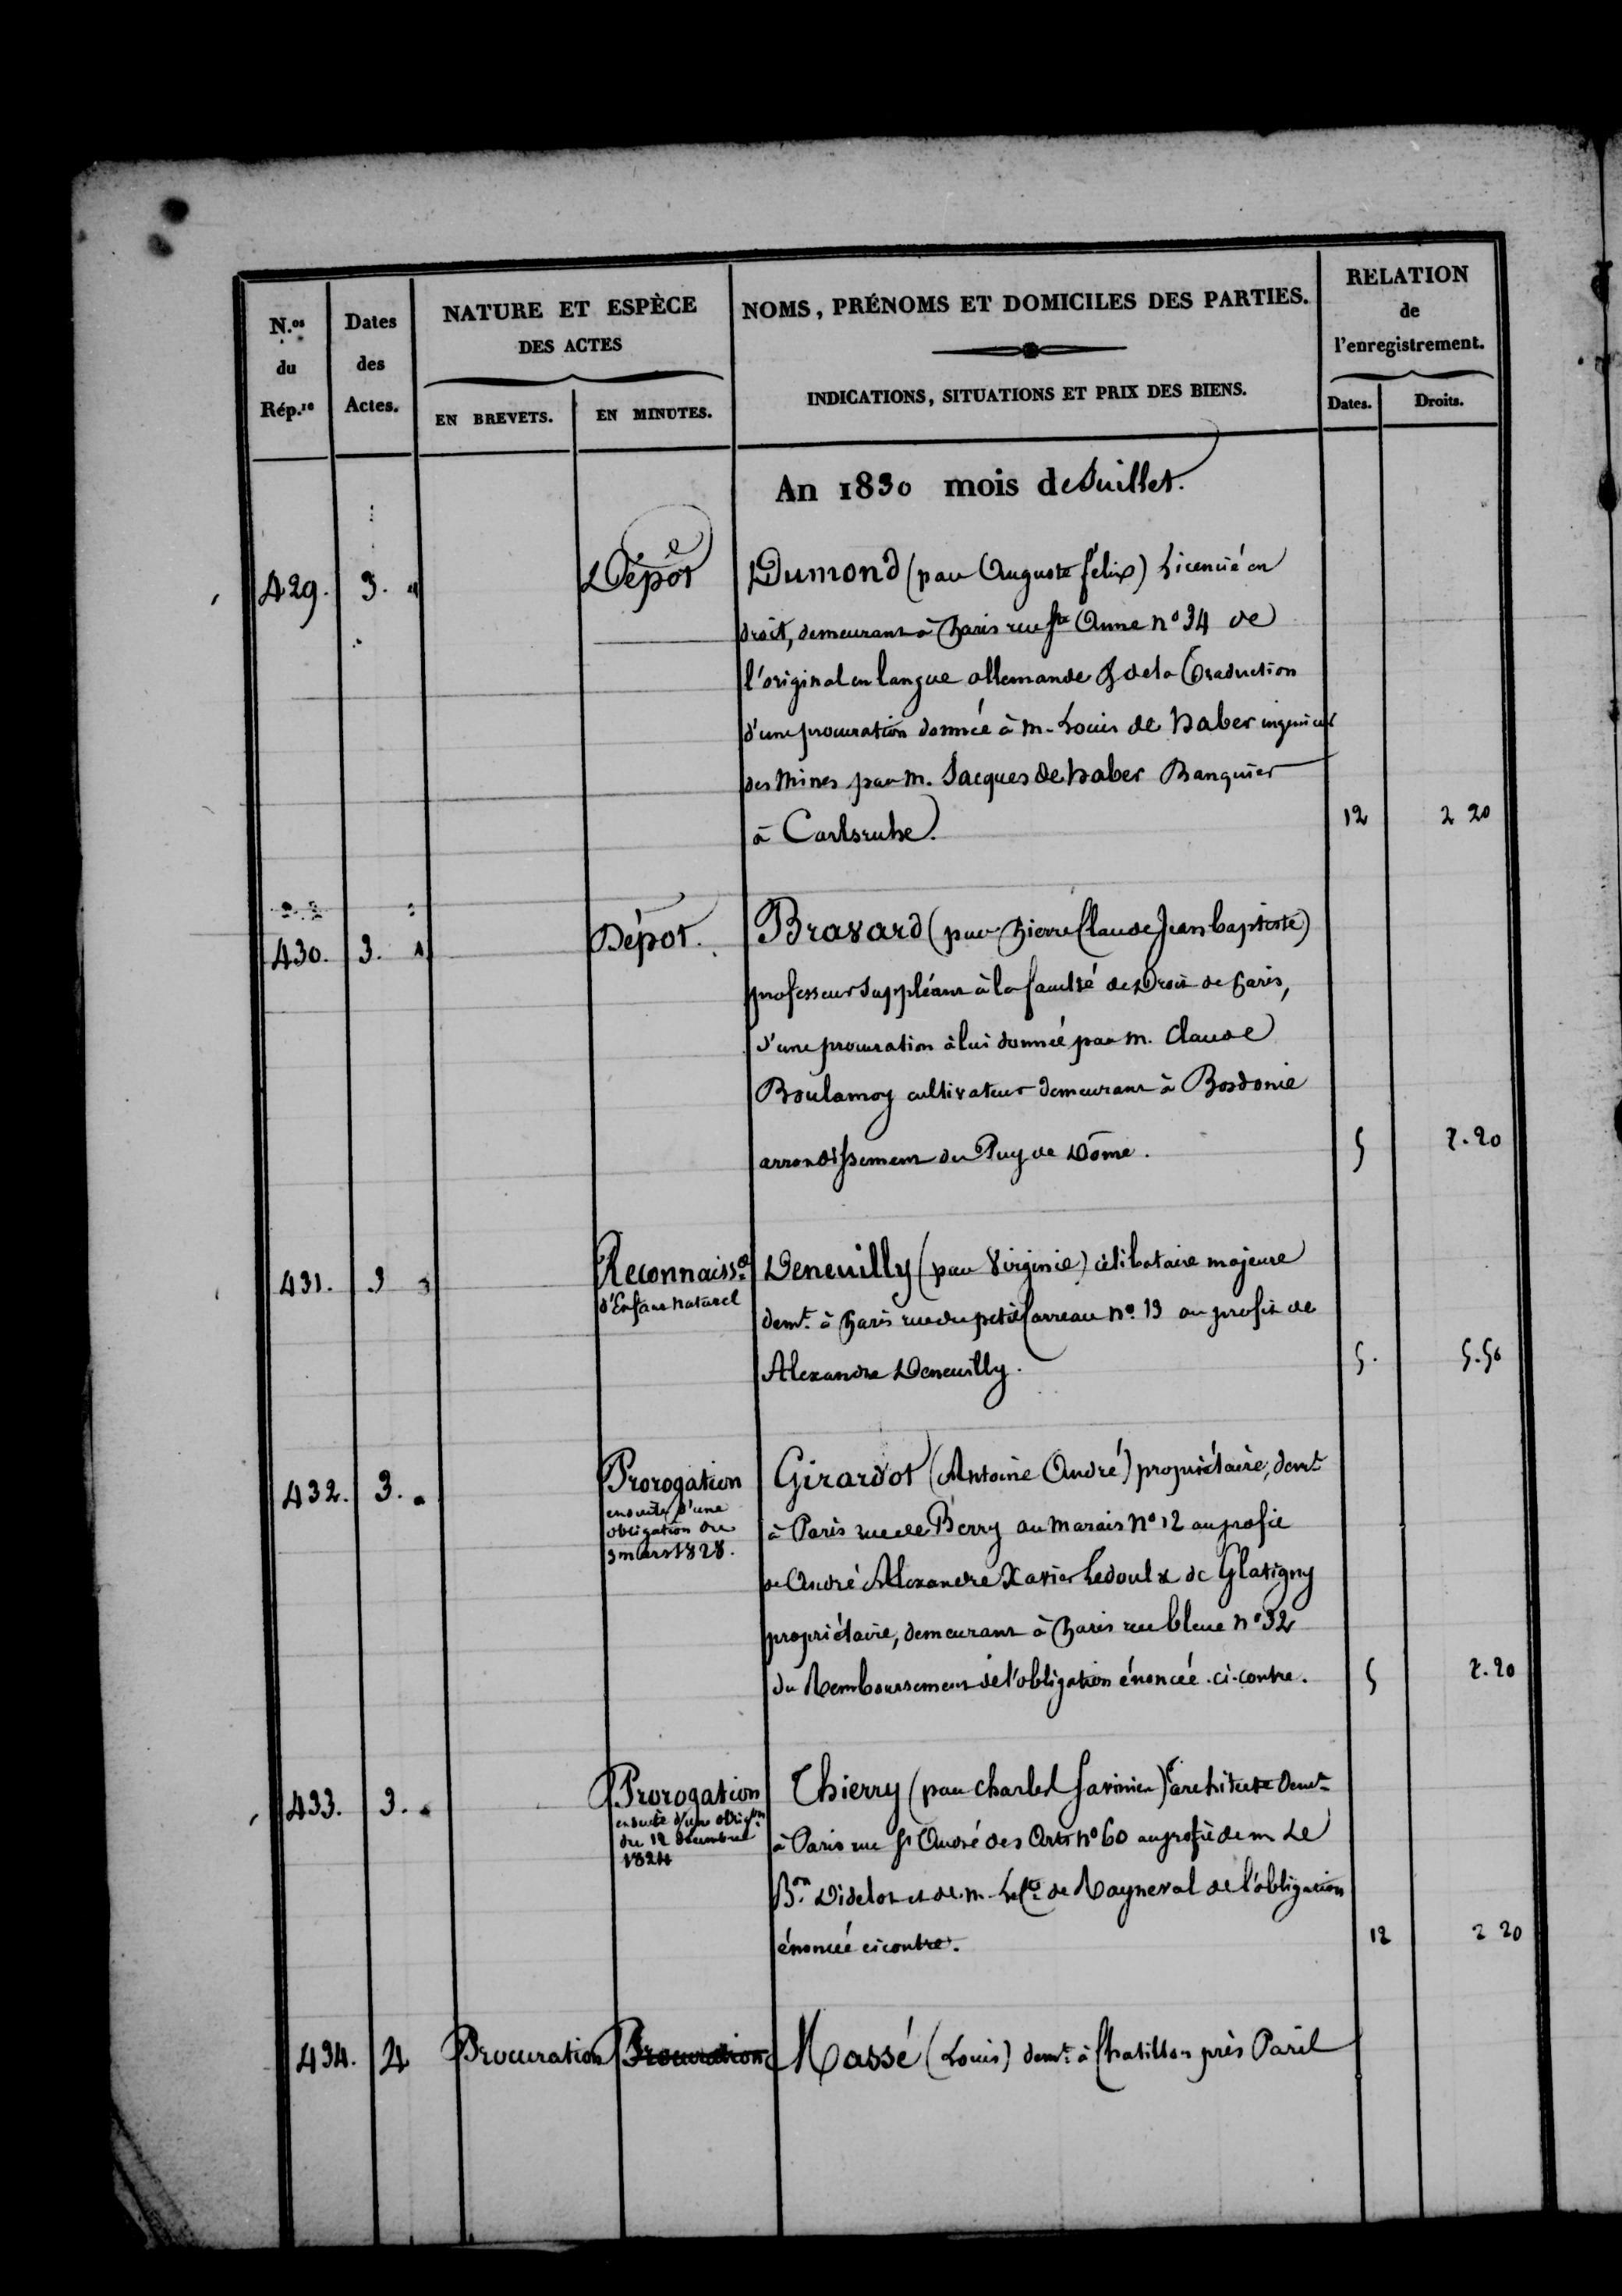 N.os du Rép.re
Dates des Actes.
NATURE ET ESPÈCE DES ACTES
EN BREVETS.
EN MINUTES.
NOMS, PRÉNOMS ET DOMICILES DES PARTIES.
INDICATIONS, SITUATIONS ET PRIX DES BIENS.
RELATION de l'enregistrement.
Dates.
Droits.
An 1830 mois de Juillet.
429. 3. Dépôt Dumond (par Auguste félix) Licencié en
droit, demeurant à Paris rue Ste Anne n° 34 de
l'original en langue allemande & de la traduction
d'une procuration donnée à m. Louis de haber ingénieur
des Mines par m. Jacques de haber Banquier
à Carlsruhe. 12 2 20
430. 3. Dépot. Bravard (par Pierre Claude Jean baptiste)
professeur Suppléant à la faculté de Droit de Paris,
d'une procuration à lui donnée par m. Claude
Boulamoy cultivateur demeurant à
arrondissement du Puy de Dôme. 5 2.20
431. 3 Reconnaiss.ce Deneuilly (par Virginie) célibataire majeure
d'Enfant naturel
demt. à Paris rue du petit Carreau n°. 13 au profit de
Alexandre Deneuilly. 5. 5.50
432. 3. Prorogation Girardot (Antoine André) propriétaire, demt.
ensuite d'une
obligation du
3 mars 1828.
à Paris rue de Berry au marais n° 12 au profit
de André Alexandre Xavier Ledoulx de Glatigny
propriétaire, demeurant à Paris rue bleue n° 32
du Remboursement de l'obligation énoncée ci-contre. 5 2.20
433. 3. Prorogation Thierry (par Charles Savinien) architecte demt.
ensuite d'une oblig.on
du 12 décembre
1824
à Paris rue St André des Arts n° 60 au profit de m Le
B.on Didelot et de m. Le Cte de Rayneval de l'obligation
énoncée ci contre. 12 2 20
434. 4 Procuration Procuration Massé (Louis) demt. à Chatillon près Paris